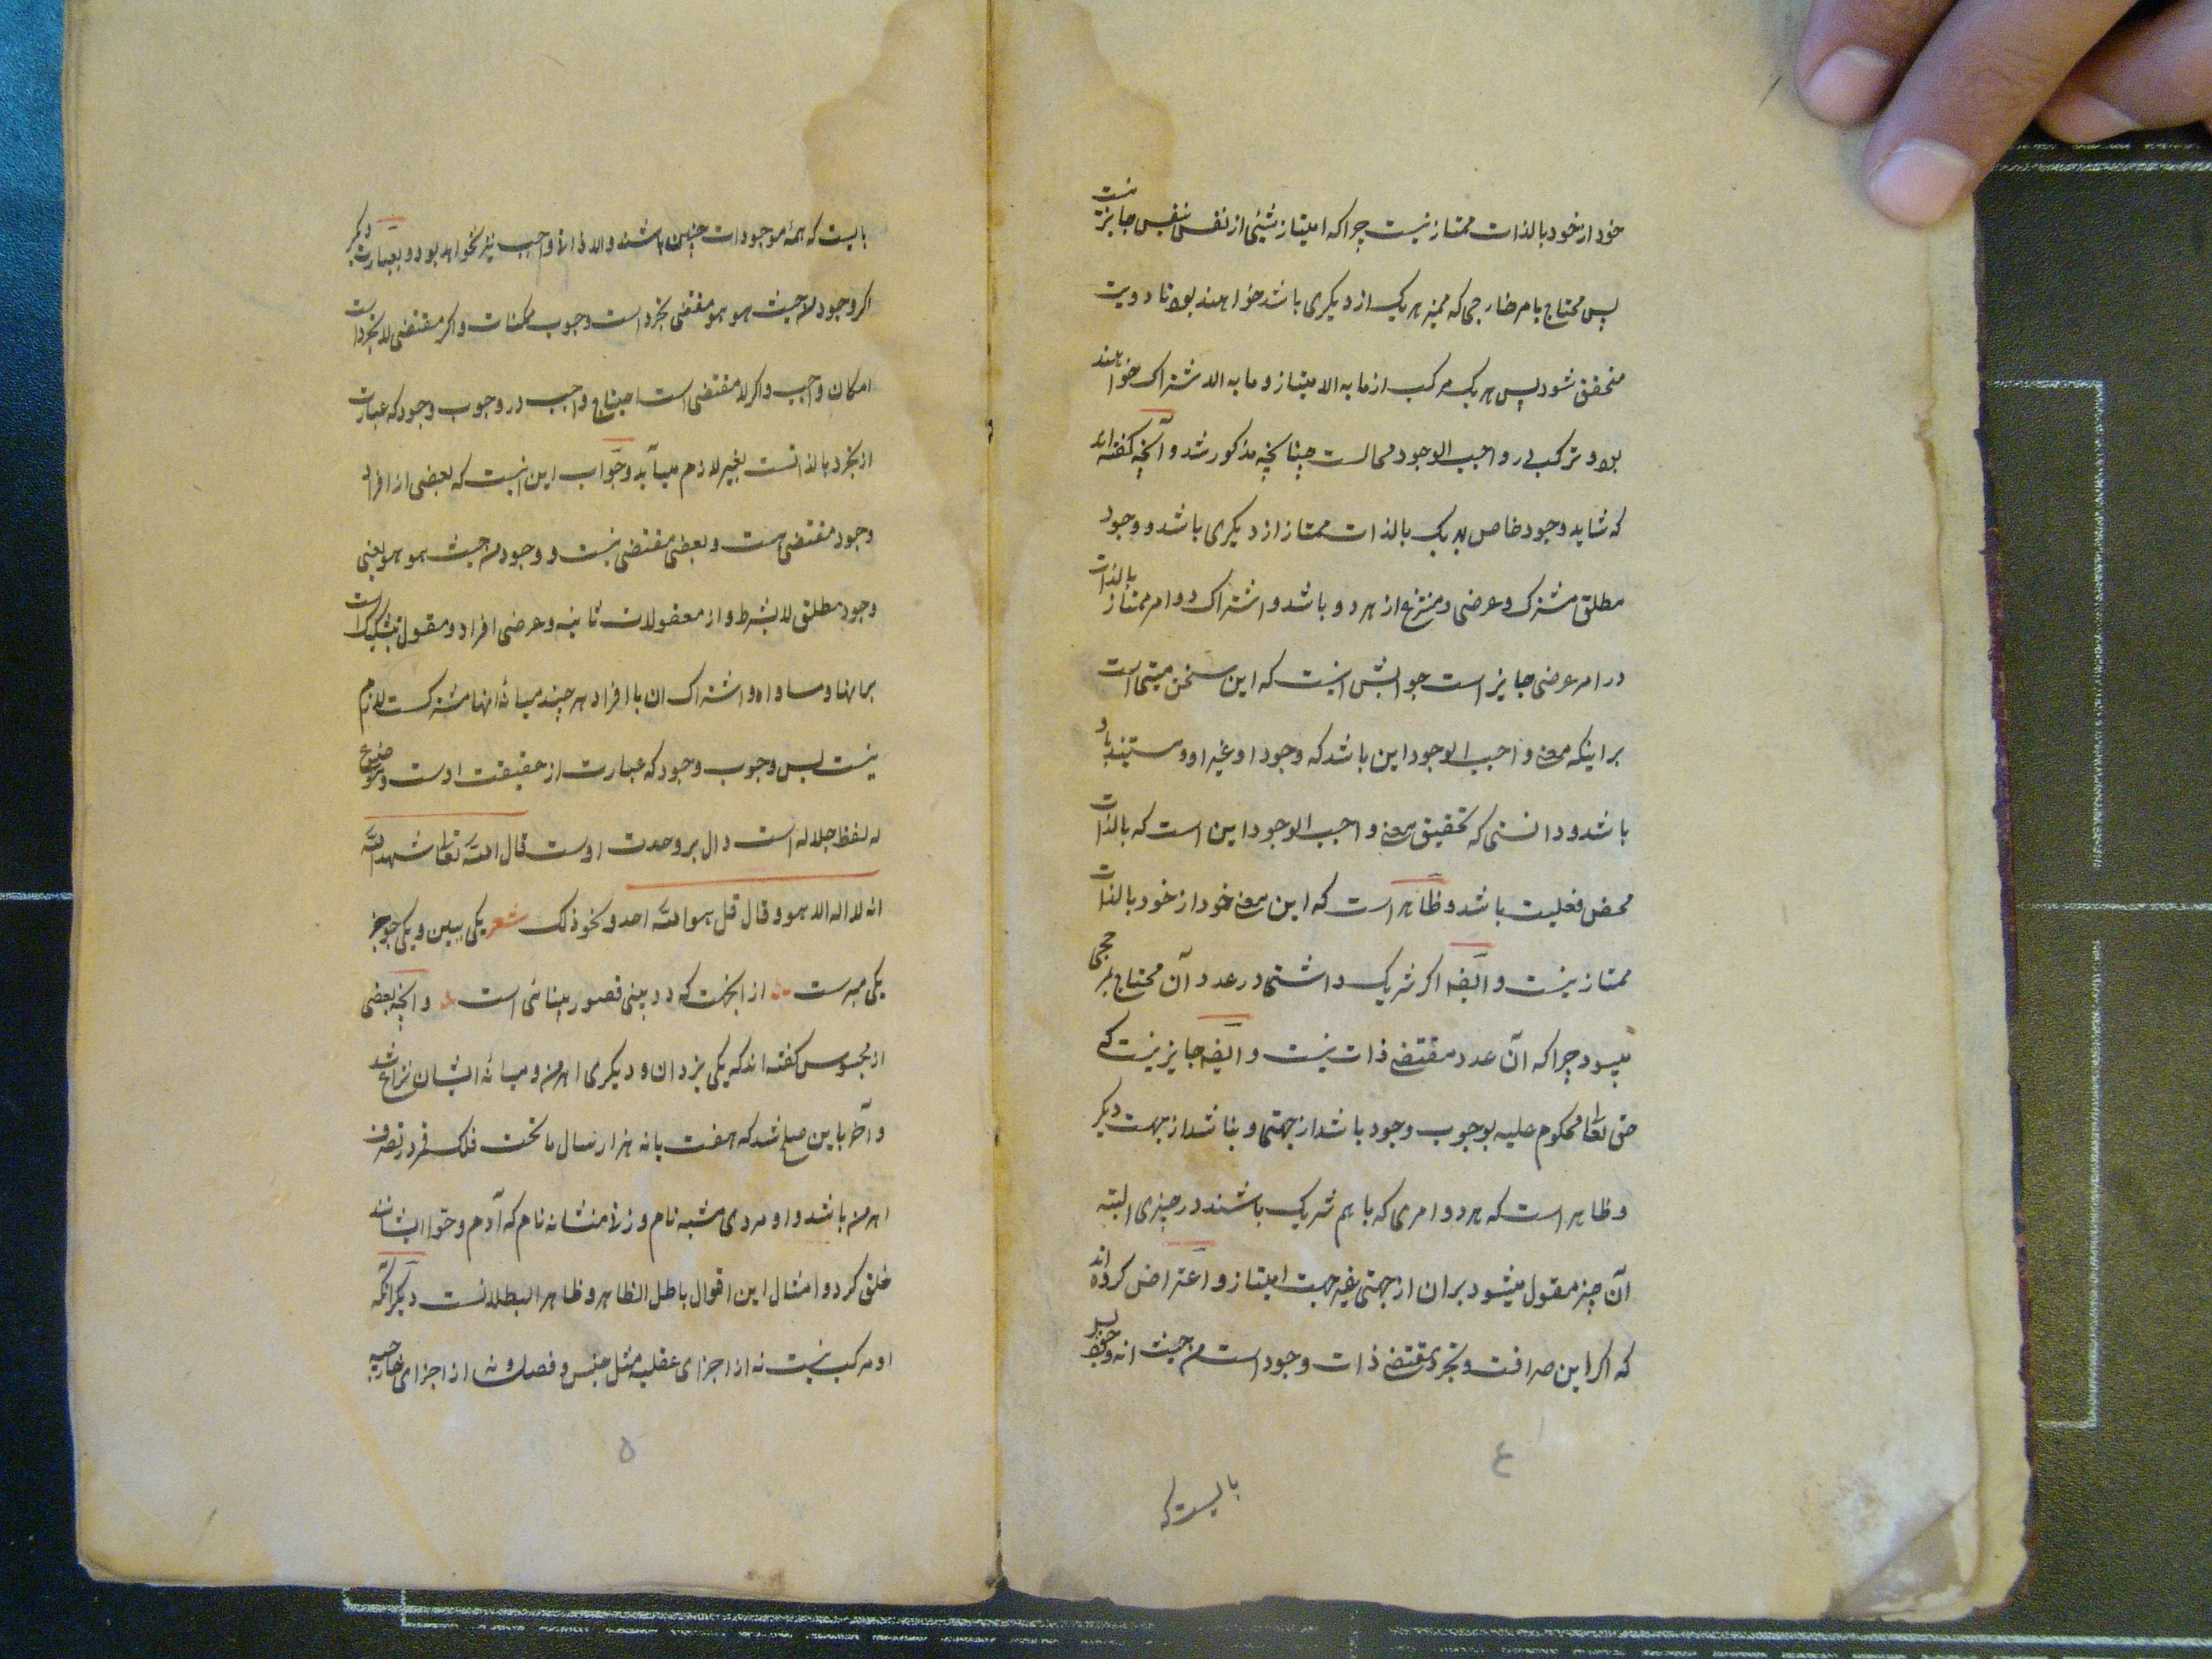 خود از خود بالذات ممتاز نیست چرا که امتیاز شیئی از نفس بنفس جایز نیست
پس محتاج بامر خارجی که ممیز هر یک از دیگری باشد خواهند بود تا دویت
متحقق شود پس هر یک مرکب از ما به الامتیاز و ما به الاشتراک خواهند
بود و ترکب در واجب الوجود محالست چنانچه مذکور شد و آنچه گفته اند
که شاید وجود خاص هر یک بالذات ممتاز از دیگری باشد و وجود
مطلق مشترک و عرضی و منتزع از هر دو باشد و اشتراک دو امر ممتاز بالذات
در امر عرضی جایز است جوابش اینست که این سخن مبتنی است
بر اینکه معنی واجب الوجود این باشد که وجود او غیر او و مستند باو
باشد و دانستی که تحقیق معنی واجب الوجود این است که بالذات
محض فعلیت باشد و ظاهر است که این معنی خود از خود بالذات
ممتاز نیست و ایضا اگر شریک داشتی در عدد آن محتاج بمرجحی
میبود چرا که آن عدد مقتضی ذات نیست و ایضا جایز نیست که
حق تعالی محکوم علیه بوجوب وجود باشد از جهتی و نباشد از جهت دیگر
و ظاهر است که هر دو امری که با هم شریک باشند در چیزی البته
آن چیز مقول میشود بر ان از جهتی غیر جهت امتیاز و اعتراض کرده اند
که اگر این صرافت و تجرد مقتضی ذات وجود است من حیث انه وجود پس
۴
بایست که
بایست که همه موجودات چنین باشند والا ذات واجب نیز نخواهد بود و بعبارت دیگر
اگر وجود من حیث هو هو مقتضی تجرد است وجوب ممکنات و اگر مقتضی لا تجرد است
امکان واجب و اگر لا مقتضی است احتیاج واجب در وجوب وجود که عبارت
از تجرد بالذاتست بغیر لازم میآید و جواب این اینست که بعضی از افراد
وجود مقتضی است و بعضی مقتضی نیست و وجود من حیث هو هو یعنی
وجود مطلق لا بشرط و از معقولات ثانیه و عرضی افراد و مقول بتشکیک است
بر انها و مساواه و اشتراک ان با افراد هر چند میانهٔ انها مشترکست لازم
نیست پس وجوب وجود که عبارت از حقیقت اوست و موضوع
له لفظ جلاله است دال بر وحدت اوست قال الله تعالی شهد الله
انه لا اله الا هو و قال قل هو الله احد و نحو ذلک شعر یکی ببین و یکی جو جز
یکی مپرست از انجهت که دو بینی قصور بینائی است و انچه بعضی
از مجوس گفته اند که یکی یزدان و دیگری اهرمن و میانهٔ ایشان نزاع شد
و آخر باین صلح شد که هفت یا نه هزار سال ما تحت فلک قمر در تصرف
اهرمن باشد و او مردی مشیه نام و زنی منشانه نام که آدم و حوا ایشانند
خلق کرد و امثال این اقوال باطل الظاهر و ظاهر البطلانست دیگر آنکه
او مرکب نیست نه از اجزای عقلیه مثل جنس و فصل و نه از اجزای خارجیه
۵